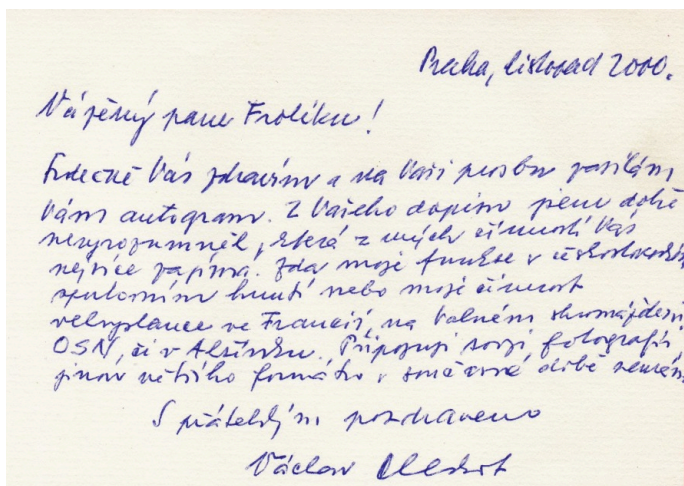 Praha, listopad 2000.
Vážený pane Frolíku!
Srdečně Vás zdravím a na Vaši prosbu zasílám
Vám autogram. Z Vašeho dopisu jsem dobře
nevyrozuměl, která z mých činností Vás
nejvíce zajímá. Zda moje funkce v československém
sportovním hnutí nebo moje činnost
velvyslance ve Francii, na Valném shromáždění
OSN, či v Alžírsku. Připojuji svoji fotografii
jinou většího formátu v současné době nemám
S přátelským pozdravem
Václav